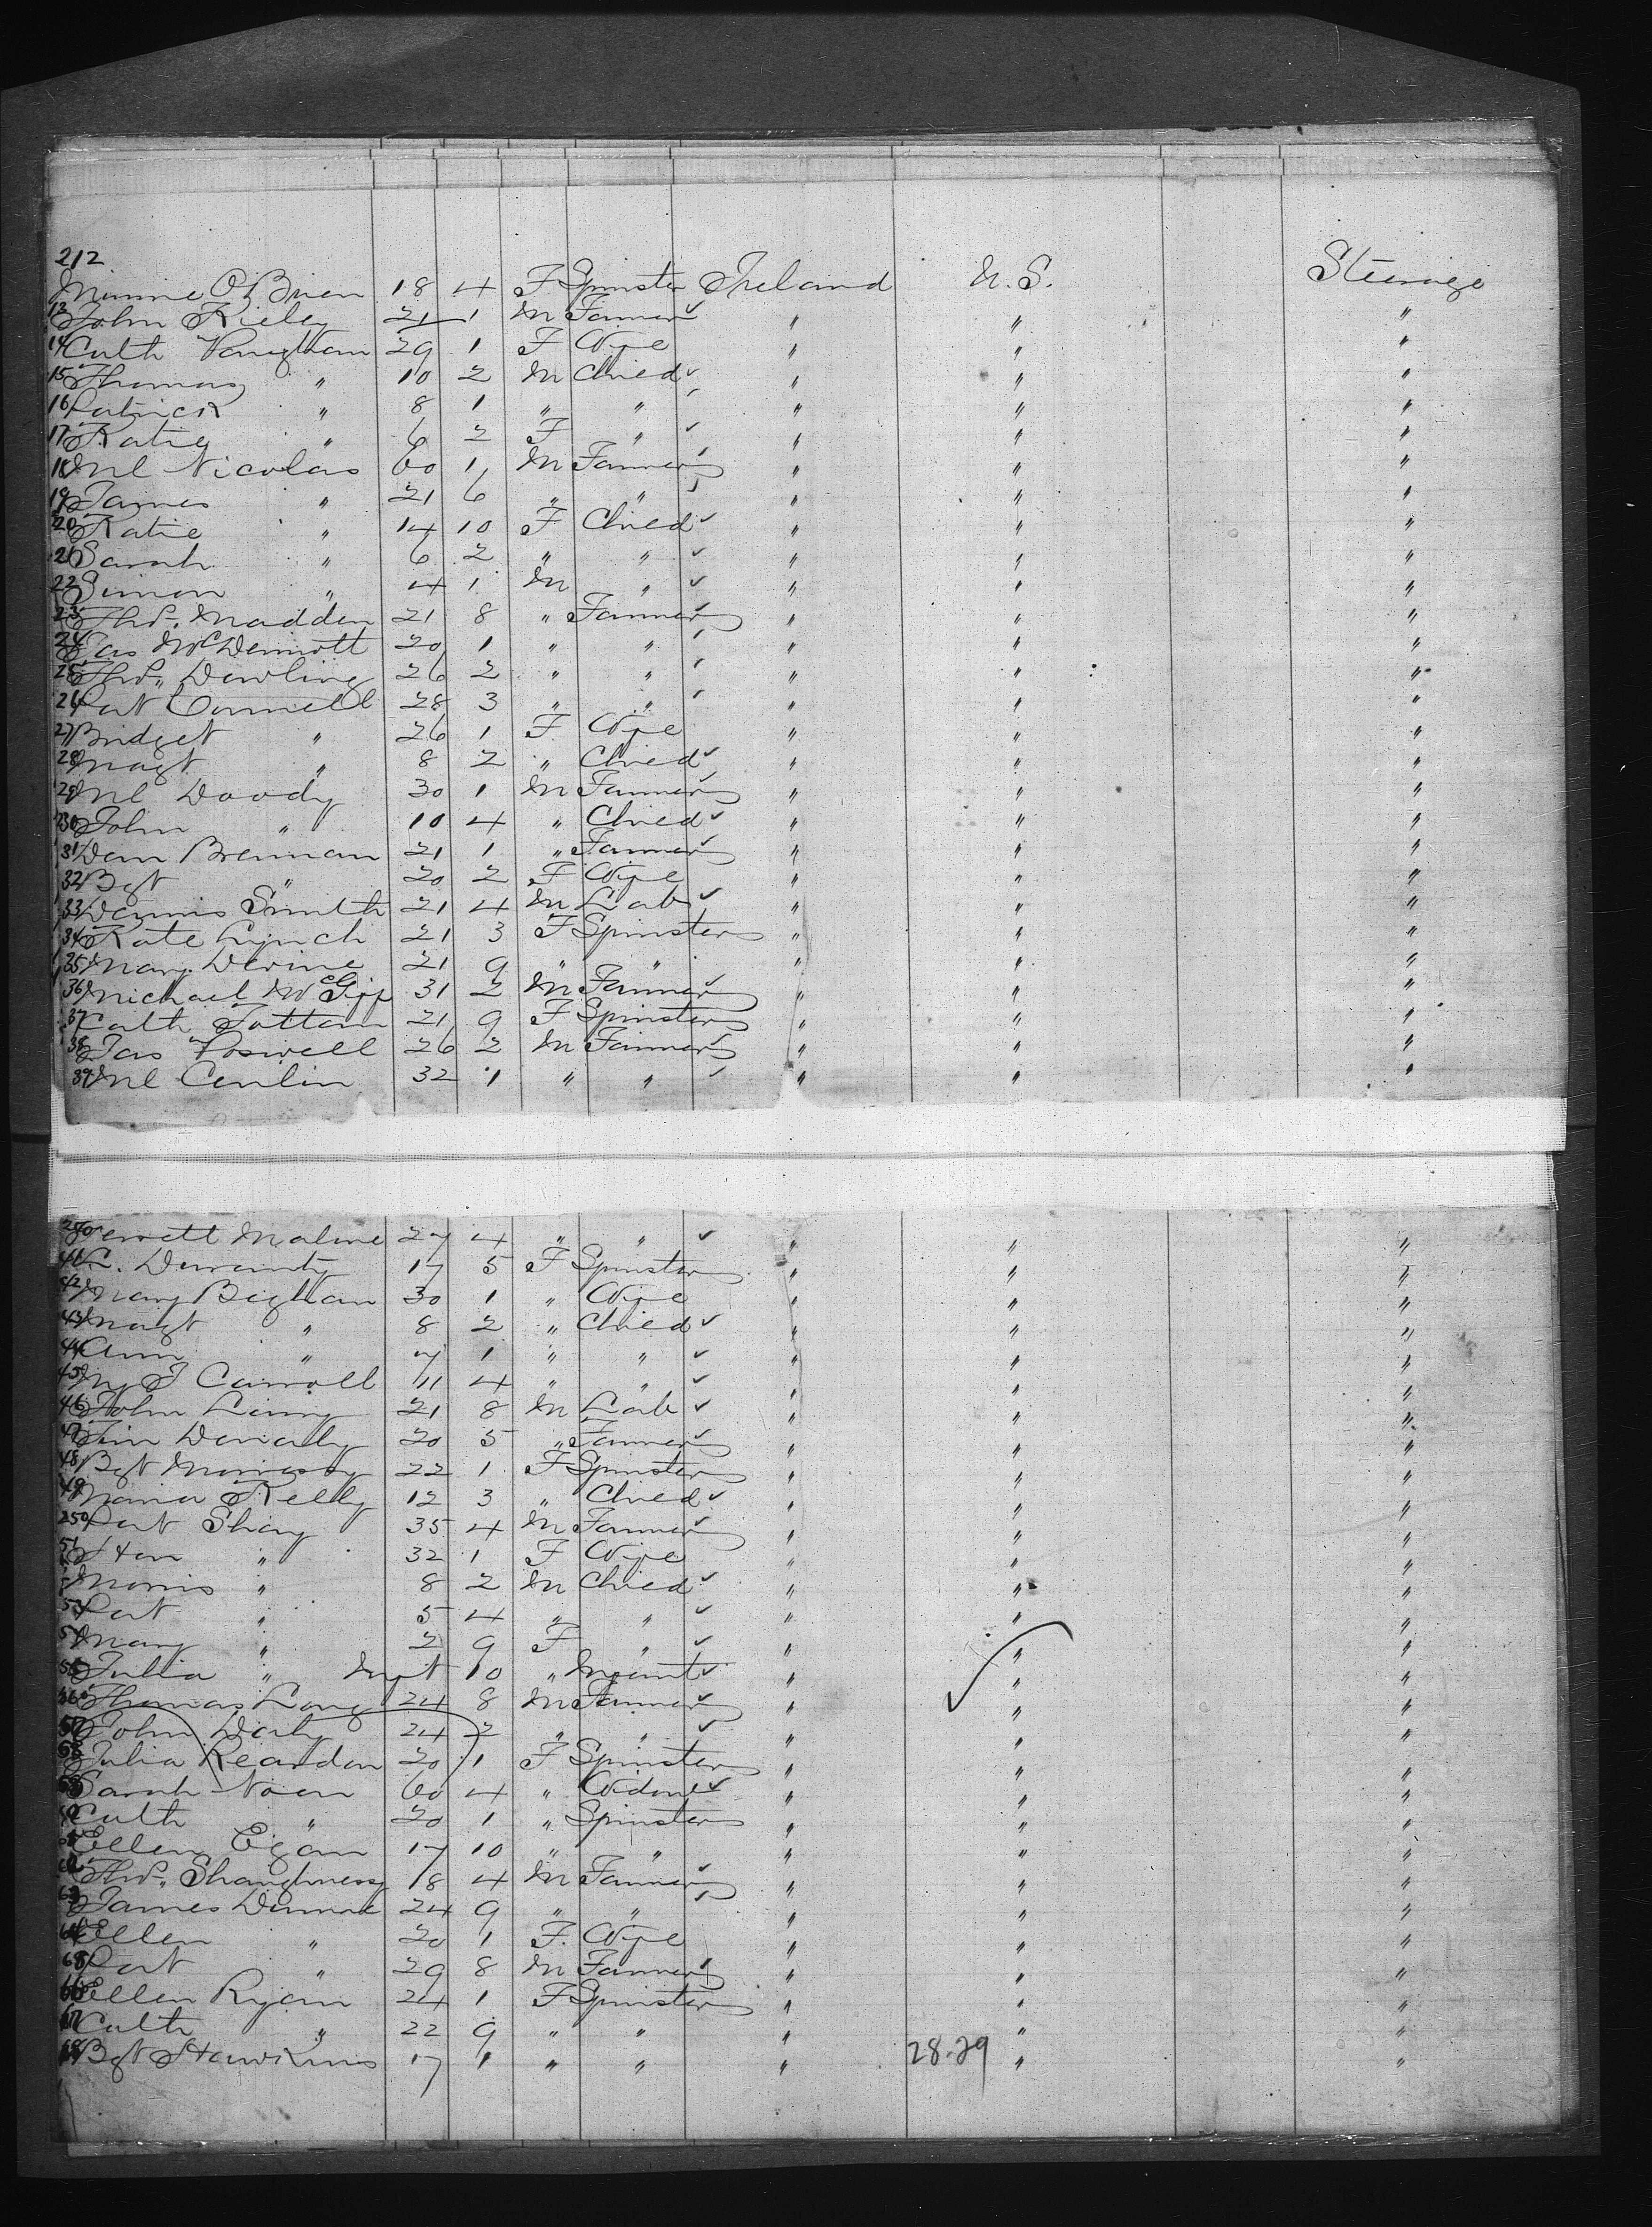 212
Minnie O'Brien 18 4 F Spinster Ireland U.S. Steerage
13 John Kieley 21 1 M Farmer " " "
14 Cath Vaughan 29 1 F Wife " " "
15 Thomas " 10 2 M Child " " "
16 Patrick " 8 1 " " " " "
17 Katie " 6 2 F " " " "
18 Ml Nicolas 60 1 M Farmer " " "
19 James " 21 6 " " " " "
20 Katie " 14 10 F Child " " "
21 Sarah " 6 2 " " " " "
22 Simon " 4 1 M " " " "
23 Thos. Madden 21 8 " Farmer " " "
24 Jas McDermott 20 1 " " " " "
25 Thos. Dowling 26 2 " " " " "
26 Pat Connell 28 3 " " " " "
27 Bridget " 26 1 F. Wife " " "
28 Magt " 8 2 " Child " " "
29 Ml Doody 30 1 M Farmer " " "
230 John " 10 4 " Child " " "
31 Dan Brennan 21 1 " Farmer " " "
32 Bgt " 20 2 F Wife " " "
33 Dennis Smith 21 4 M Lab " " "
34 Kate Lynch 21 3 F Spinster " " "
35 Mary Devine 21 9 " " " " "
36 Michael 31 2 M Farmer " " "
37 Cath Tottan 21 9 F Spinster " " "
38 Jas 26 2 M Farmer " " "
39 Ml Conlin 32 1 " " " " "
240 Malone 27 4 " " " " "
41 17 5 F Spinster " " "
42 Mary Beghan 30 1 " Wife " " "
43 Magt " 8 2 " Child " " "
44 Ann " 7 1 " " " " "
45 M. J Carroll 11 4 " " " " "
46 John 21 8 M Lab " " "
47 Tim 20 5 " Farmer " " "
48 Bgt Morrissy 22 1 F Spinster " " "
49 Maria Kelly 12 3 " Child " " "
250 Pat Shay 35 4 M Farmer " " "
51 Han " 32 1 F Wife " " "
Morris " 8 2 M Child " " "
53 Pat " 5 4 " " " " "
54 Mary " 2 9 F " " " "
55 Julia " 10 " " " "
56 Thomas Long 24 8 M Farmer " " "
57 John Daly 24 2 " " " " "
58 Julia Reardon 20 1 F Spinster " " "
Sarah Noon 60 4 " Widow " " "
Cath " 20 1 " Spinster " " "
Ellen Egan 17 10 " " " " "
Thos. Shaughnessy 18 4 M Farmer " " "
63 James 24 9 " " " " "
64 Ellen " 20 1 F. Wife " " "
65 Pat " 29 8 M Farmer " " "
66 Ellen Ryan 24 1 F Spinster " " "
67 Cath " 22 9 " " " " "
68 Bgt Hawkins 17 1 " " " 28-29 " "